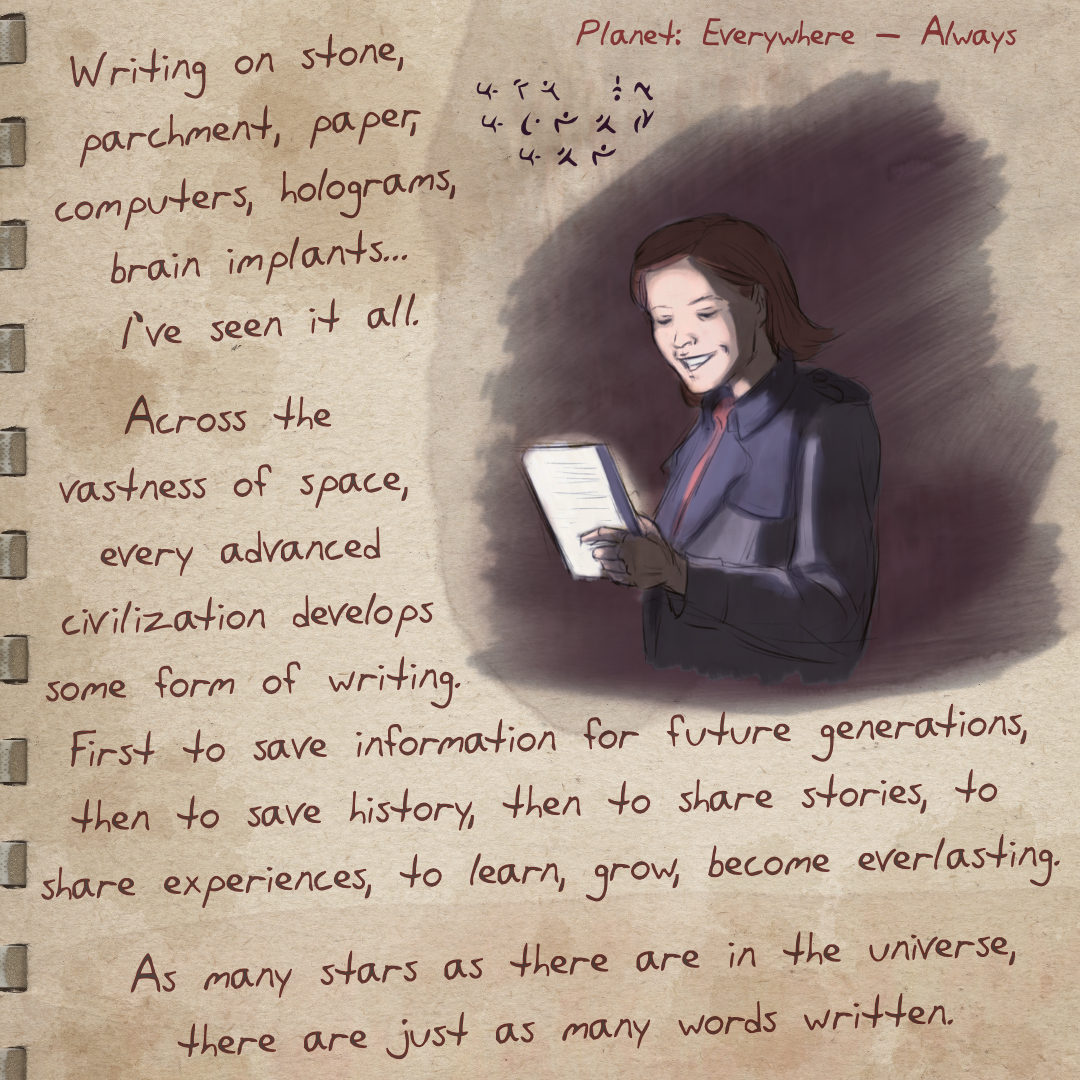 Planet: Everywhere — Always
Writing on stone,
parchment, paper,
computers, holograms,
brain implants...
I've seen it all.
Across the
vastness of space,
every advanced
civilization develops
some form of writing.
First to save information for future generations,
then to save history, then to share stories, to
share experiences, to learn, grow, become everlasting.
As many stars as there are in the universe,
there are just as many words written.